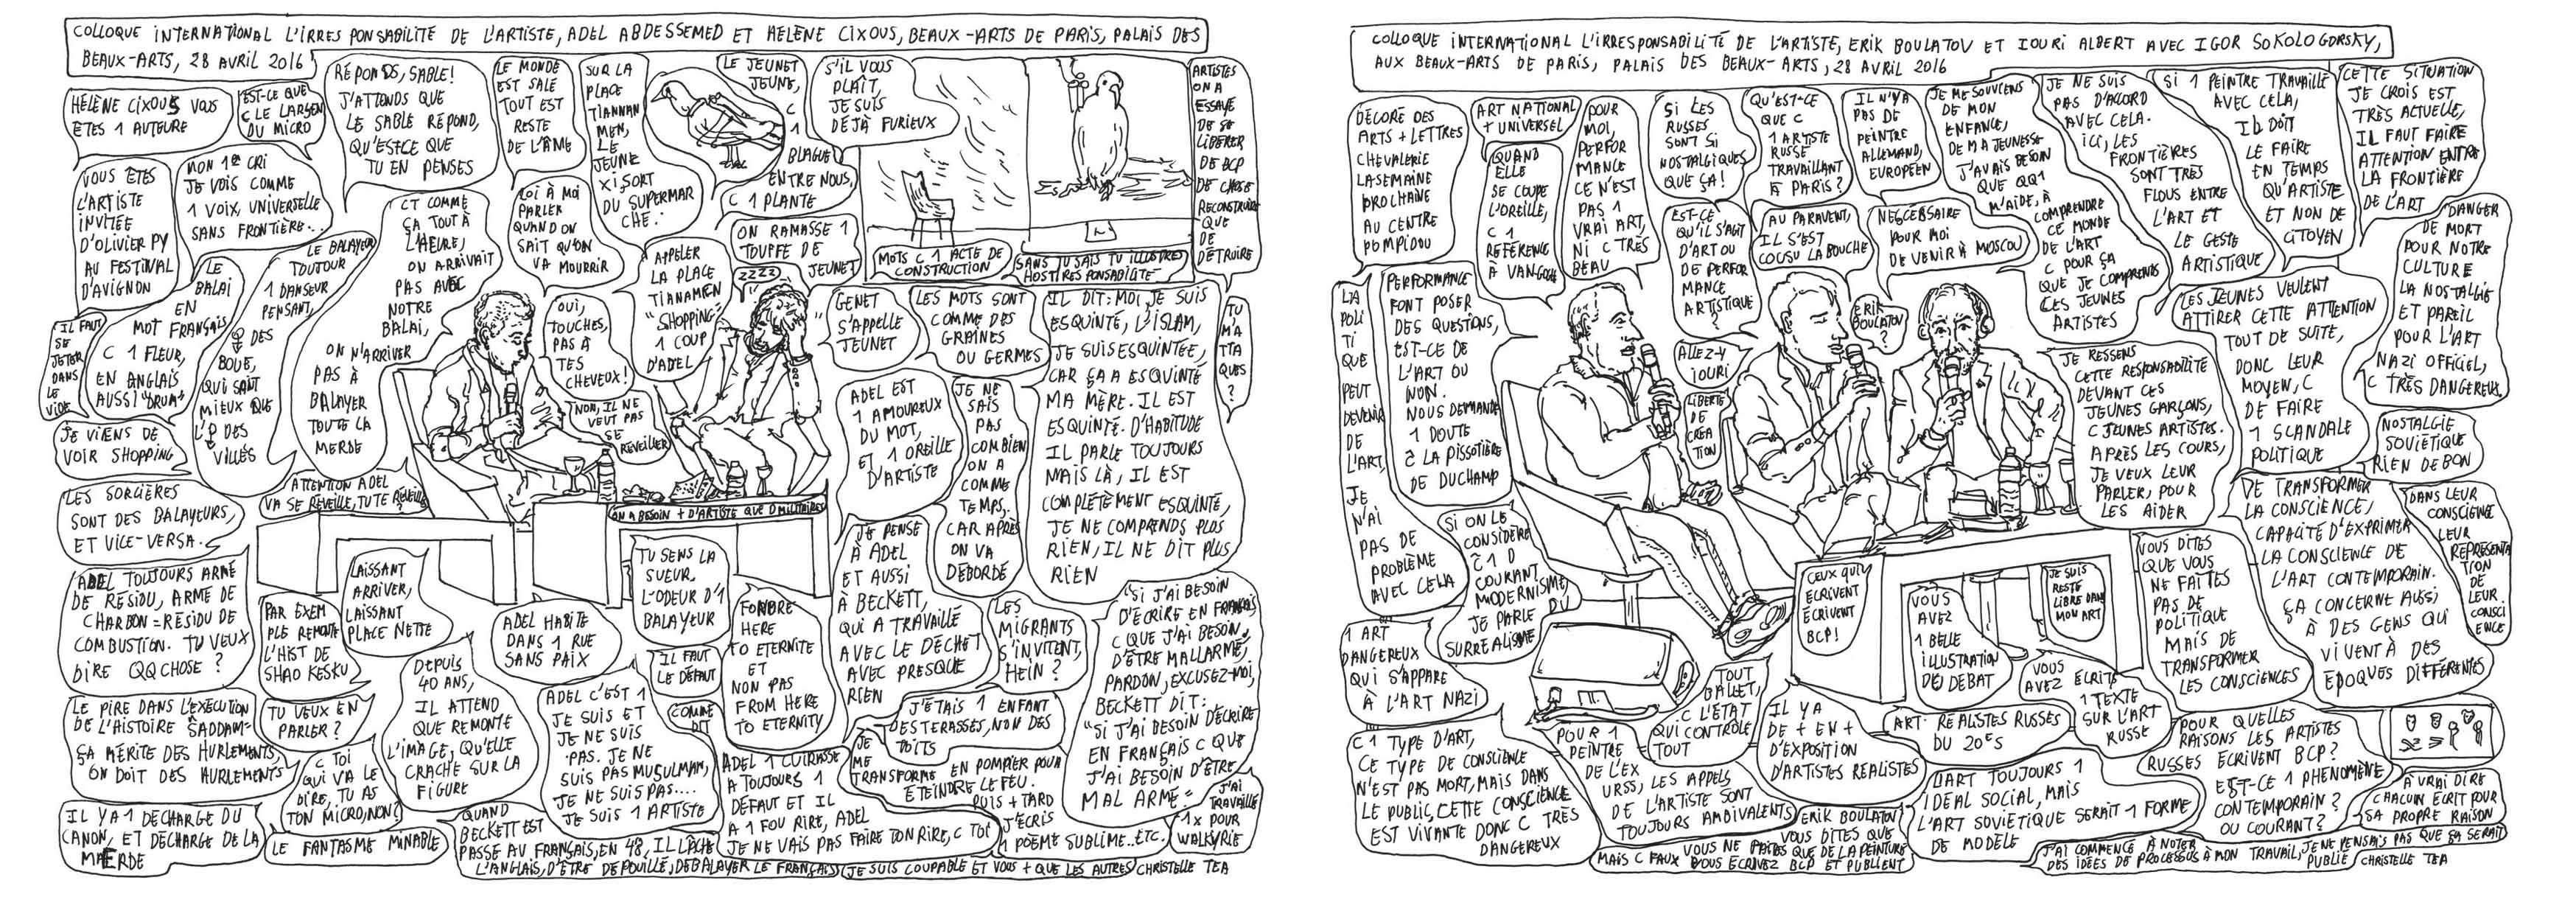 COLLOQUE INTERNATIONAL L'IRRESPONSABILITÉ DE L'ARTISTE, ADEL ABDESSEMED ET HÉLÈNE CIXOUS, BEAUX-ARTS DE PARIS, PALAIS DES
BEAUX-ARTS, 28 AVRIL 2016
HÉLÈNE CIXOUS VOUS
ÊTES 1 AUTEURE
EST-CE QUE
C LE LARSEN
DU MICRO
RÉPONDS, SABLE!
J'ATTENDS QUE
LE SABLE RÉPOND,
QU'ESTCE QUE
TU EN PENSES
LE MONDE
EST SALE
TOUT EST
RESTE
DE L'ÂME
SUR LA
PLACE
TIANNAN
MEN,
LE
JEUNE
XI SORT
DU SUPERMAR
CHÉ.
LE JEUNET
JEUNE,
C
1
BLAGUE
ENTRE NOUS,
C 1 PLANTE
S'IL VOUS
PLAÎT,
JE SUIS
DÉJÀ FURIEUX
ARTISTES
ON A
ESSAYÉ
DE SE
LIBÉRER
DE BCP
DE CHOSE
RECONSTRUIRE
QUE
DE
DÉTRUIRE
VOUS ÊTES
L'ARTISTE
INVITÉE
D'OLIVIER PY
AU FESTIVAL
D'AVIGNON
MON 1ER CRI
JE VOIS COMME
1 VOIX, UNIVERSELLE
SANS FRONTIÈRE...
LE BALAYEUR
TOUJOUR
1 DANSEUR
PENSANT,
DES
BOUE,
QUI SAIT
MIEUX QUE
L'P DES
VILLES
LE
BALAI
EN
MOT FRANÇAIS
C 1 FLEUR,
EN ANGLAIS
AUSSI "DRUM"
CT COMME
ÇA TOUT À
L'HEURE,
ON ARRIVAIT
PAS AVEC
NOTRE
BALAI,
ON N'ARRIVER
PAS À
BALAYER
TOUTE LA
MERDE
LOI À MOI
PARLER
QUAND ON
SAIT QU'ON
VA MOURRIR
APPELER
LA PLACE
TIANAMEN
"SHOPPING"
1 COUP
D'ADEL
ON RAMASSE 1
TOUFFE DE
JEUNET
ZZZZ
MOTS C 1 ACTE DE
CONSTRUCTION
SANS TU SAIS TU ILLUSTRES
IL FAUT
SE
JETER
DANS
LE
VIDE
OUI,
TOUCHES,
PAS À
TES
CHEVEUX!
GENET
S'APPELLE
JEUNET
LES MOTS SONT
COMME DES
GRAINES
OU GERMES
IL DIT: MOI, JE SUIS
ESQUINTÉ, L'ISLAM,
JE SUIS ESQUINTÉE,
CAR ÇA A ESQUINTÉ
MA MÈRE. IL EST
ESQUINTÉ. D'HABITUDE
IL PARLE TOUJOURS
MAIS LÀ, IL EST
COMPLÈTEMENT ESQUINTÉ,
JE NE COMPRENDS PLUS
RIEN, IL NE DIT PLUS
RIEN
TU
M'A
TTA
QUES
?
JE VIENS DE
VOIR SHOPPING
NON, IL NE
VEUT PAS
SE
RÉVEILLER
ADEL EST
1 AMOUREUX
DU MOT,
ET 1 OREILLE
D'ARTISTE
JE NE
SAIS
PAS
COMBIEN
ON A
COMME
TEMPS.
CAR APRÈS
ON VA
DÉBORDÉ
LES SORCIÈRES
SONT DES BALAYEURS,
ET VICE-VERSA.
ATTENTION ADEL
VA SE RÉVEILLE, TU TE RÉVEILLE
ON A BESOIN + D'ARTISTE QUE D MILITAIRES
ADEL TOUJOURS ARMÉ
DE RÉSIDU, ARME DE
CHARBON = RÉSIDU DE
COMBUSTION. TU VEUX
DIRE QQCHOSE ?
PAR EXEM
PLE REMONTE
L'HIST DE
SHAO KESKU
LAISSANT
ARRIVER,
LAISSANT
PLACE NETTE
ADEL HABITE
DANS 1 RUE
SANS PAIX
TU SENS LA
SUEUR,
L'ODEUR D'1
BALAYEUR
FONDRE
HERE
TO ETERNITE
ET
NON PAS
FROM HERE
TO ETERNITY
JE PENSE
À ADEL
ET AUSSI
À BECKETT,
QUI A TRAVAILLÉ
AVEC LE DÉCHET
AVEC PRESQUE
RIEN
LES
MIGRANTS
S'INVITENT,
HEIN ?
"SI J'AI BESOIN
D'ÉCRIRE EN FRANÇAIS
C QUE J'AI BESOIN
D'ÊTRE MALLARMÉ,
PARDON, EXCUSEZ-MOI,
BECKETT DIT:
"SI J'AI BESOIN D'ÉCRIRE
EN FRANÇAIS C QUE
J'AI BESOIN D'ÊTRE
MAL ARMÉ"
LE PIRE DANS L'EXÉCUTION
DE L'HISTOIRE SADDAM
ÇA MÉRITE DES HURLEMENTS,
ON DOIT DES HURLEMENTS
TU VEUX EN
PARLER ?
DEPUIS
40 ANS,
IL ATTEND
QUE REMONTE
L'IMAGE, QU'ELLE
CRACHE SUR LA
FIGURE
C TOI
QUI VA LE
DIRE, TU AS
TON MICRO, NON?
ADEL C'EST 1
JE SUIS ET
JE NE SUIS
PAS. JE NE
SUIS PAS MUSULMAM,
JE NE SUIS PAS....
JE SUIS 1 ARTISTE
IL FAUT
LE DÉFAUT
COMME
DIT
ADEL 1 CUIRASSE
A TOUJOURS 1
DÉFAUT ET IL
A 1 FOU RIRE, ADEL
JE NE VAIS PAS FAIRE TON RIRE, C TOI
J'ÉTAIS 1 ENFANT
DES TERASSES, NON DES
TOITS
JE
ME
TRANSFORME EN POMPIER POUR
ÉTEINDRE LE FEU.
PUIS + TARD
J'ÉCRIS
1 POÈME SUBLIME..ETC.
J'AI
TRAVAILLÉ
1X POUR
WALKYRIE
IL Y A 1 DÉCHARGE DU
CANON, ET DÉCHARGE DE LA
MAERDE
LE FANTASME MINABLE
QUAND
BECKETT EST
PASSÉ AU FRANÇAIS, EN 48, IL LÂCHE
L'ANGLAIS, D'ÊTRE DÉPOUILLÉ, DÉBALAYER LE FRANÇAIS
JE SUIS COUPABLE ET VOUS + QUE LES AUTRES
CHRISTELLE TEA
COLLOQUE INTERNATIONAL L'IRRESPONSABILITÉ DE L'ARTISTE, ERIK BOULATOV ET IOURI ALBERT AVEC IGOR SOKOLOGORSKY,
AUX BEAUX-ARTS DE PARIS, PALAIS DES BEAUX-ARTS, 28 AVRIL 2016
DÉCORÉ DES
ARTS + LETTRES
CHEVALERIE
LA SEMAINE
PROCHAINE
AU CENTRE
POMPIDOU
ART NATIONAL
+ UNIVERSEL
QUAND
ELLE
SE COUPE
L'OREILLE,
C 1
RÉFÉRENCE
À VAN GOGH
POUR
MOI,
PERFOR
MANCE
CE N'EST
PAS 1
VRAI ART,
NI C TRÈS
BEAU
SI LES
RUSSES
SONT SI
NOSTALGIQUES
QUE ÇA!
QU'EST-CE
QUE C
1 ARTISTE
RUSSE
TRAVAILLANT
À PARIS ?
IL N'Y A
PAS DE
PEINTRE
ALLEMAND,
EUROPÉEN
JE ME SOUVIENS
DE MON
ENFANCE,
DE MA JEUNESSE
J'AVAIS BESOIN
QUE QQ1
M'AIDE, À
COMPRENDRE
CE MONDE
DE L'ART
C POUR ÇA
QUE JE COMPRENDS
CES JEUNES
ARTISTES
JE NE SUIS
PAS D'ACCORD
AVEC CELA.
ICI, LES
FRONTIÈRES
SONT TRÈS
FLOUS ENTRE
L'ART ET
LE GESTE
ARTISTIQUE
SI 1 PEINTRE TRAVAILLE
AVEC CELA,
IL DOIT
LE FAIRE
EN TEMPS
QU'ARTISTE
ET NON DE
CITOYEN
CETTE SITUATION
JE CROIS EST
TRÈS ACTUELLE,
IL FAUT FAIRE
ATTENTION ENTRE
LA FRONTIÈRE
DE L'ART
DANGER
DE MORT
POUR NOTRE
CULTURE
LA NOSTALGIE
ET PAREIL
POUR L'ART
NAZI OFFICIEL,
C TRÈS DANGEREUX
EST-CE
QU'IL S'AGIT
D'ART OU
DE PERFOR
MANCE
ARTISTIQUE
?
AU PARAVENT,
IL S'EST
COUSU LA BOUCHE
NESCÉSSAIRE
POUR MOI
DE VENIR À MOSCOU
LA
POLI
TI
QUE
PEUT
DEVENIR
DE
L'ART,
JE
N'AI
PAS DE
PROBLÈME
AVEC CELA
PERFORMANCE
FONT POSER
DES QUESTIONS,
EST-CE DE
L'ART OU
NON.
NOUS DEMANDE
1 DOUTE
LA PISSOTIÈRE
DE DUCHAMP
ERIK
BOULATOV
?
ALLEZ-Y
IOURI
LIBERTÉ
DE
CRÉA
TION
LES JEUNES VEULENT
ATTIRER CETTE ATTENTION
TOUT DE SUITE,
DONC LEUR
MOYEN, C
DE FAIRE
1 SCANDALE
POLITIQUE
JE RESSENS
CETTE RESPONSABILITÉ
DEVANT CES
JEUNES GARÇONS,
C JEUNES ARTISTES.
APRÈS LES COURS,
JE VEUX LEUR
PARLER, POUR
LES AIDER
NOSTALGIE
SOVIÉTIQUE
RIEN DE BON
SI ON LE
CONSIDÈRE
1 D
COURANT
MODERNISME,
JE PARLE DU
SURRÉALISME
DE TRANSFORMER
LA CONSCIENCE,
CAPACITÉ D'EXPRIMER
LA CONSCIENCE DE
L'ART CONTEMPORAIN.
ÇA CONCERNE AUSSI
À DES GENS QUI
VIVENT À DES
ÉPOQUES DIFFÉRENTES
DANS LEUR
CONSCIENCE
LEUR
REPRÉSENTA
TION
DE
LEUR
CONSCI
ENCE
CEUX QUI
ÉCRIVENT
ÉCRIVENT
BCP!
VOUS
AVEZ
1 BELLE
ILLUSTRATION
DU DÉBAT
JE SUIS
RESTÉ
LIBRE DANS
MON ART
VOUS DITES
QUE VOUS
NE FAITES
PAS DE
POLITIQUE
MAIS DE
TRANSFORMER
LES CONSCIENCES
1 ART
DANGEREUX
QUI S'APPARE
À L'ART NAZI
VOUS
AVEZ ÉCRIT
1 TEXTE
SUR L'ART
RUSSE
TOUT
BALLET,
C L'ÉTAT
QUI CONTRÔLE
TOUT
IL Y A
DE + EN +
D'EXPOSITION
D'ARTISTES RÉALISTES
ART: RÉALISTES RUSSES
DU 20ES
POUR QUELLES
RAISONS LES ARTISTES
RUSSES ÉCRIVENT BCP?
EST-CE 1 PHÉNOMÈNE
CONTEMPORAIN ?
OU COURANT ?
C 1 TYPE D'ART,
CE TYPE DE CONSCIENCE
N'EST PAS MORT, MAIS DANS
LE PUBLIC, CETTE CONSCIENCE
EST VIVANTE DONC C TRÈS
DANGEREUX
POUR 1
PEINTRE
DE L'EX
URSS, LES APPELS
DE L'ARTISTE SONT
TOUJOURS AMBIVALENTS
L'ART TOUJOURS 1
IDÉAL SOCIAL, MAIS
L'ART SOVIÉTIQUE SERAIT 1 FORME
DE MODÈLE
À VRAI DIRE
CHACUN ÉCRIT POUR
SA PROPRE RAISON
ERIK BOULATOV
VOUS DITES QUE
VOUS NE FAITES QUE DE LA PEINTURE
MAIS C FAUX VOUS ÉCRIVEZ BCP ET PUBLIENT
J'AI COMMENCÉ À NOTER
DES IDÉES DE PROCESSUS À MON TRAVAIL, JE NE PENSAIS PAS QUE ÇA SERAIT
PUBLIÉ
CHRISTELLE TEA